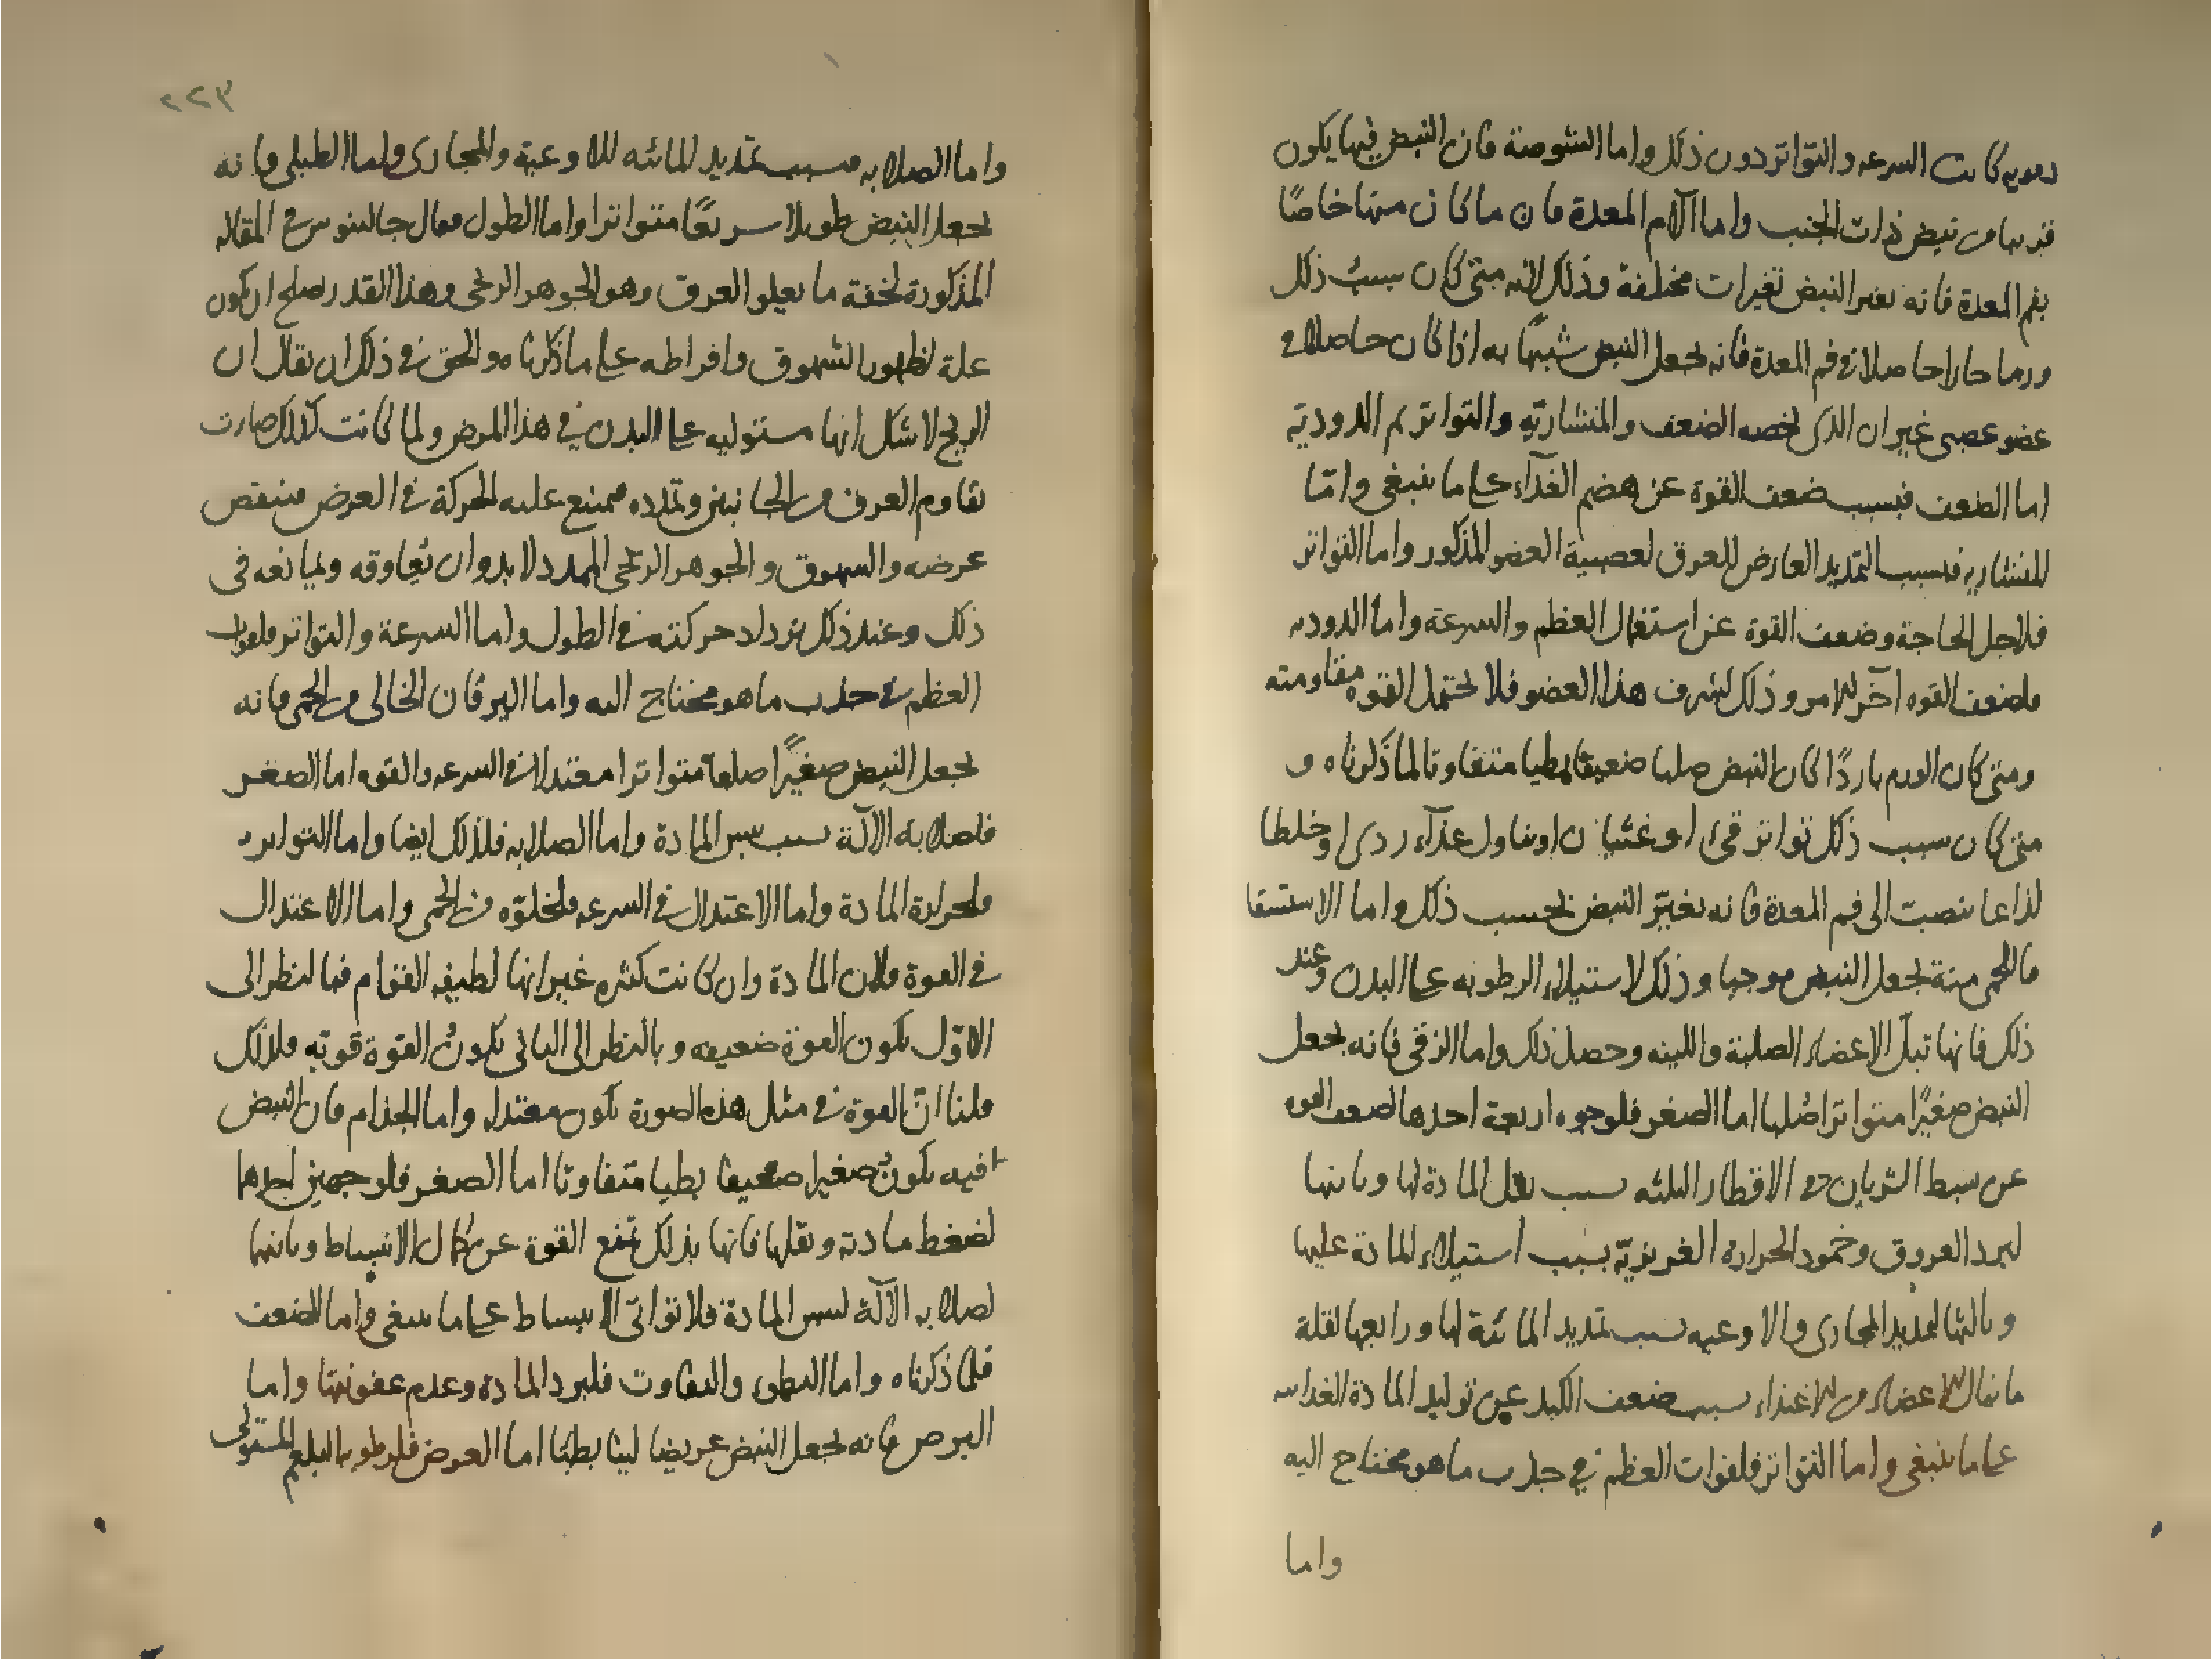 دمويه كانت السرعه والتواتر دون ذلك واما الشوصة فان النبض فيها يكون
قريبا من نبض ذات الجنب واما آلام المعدة فان ما كان منها خاصًا
بفم المعدة فانه يغير النبض تغيرات مختلفة وذلك لانه متى كان سبب ذلك
ورما حارا حاصلا في فم المعدة فانه يجعل النبض شبيهًا به اذا كان حاصلا في
عضو عصبى غير ان الذى يخصه الضعف والمنشارية والتواتر ثم الدودية
اما الضعف فبسبب ضعف القوة عن هضم الغذآء على ما ينبغى وامّا
المنشاريه فبسبب التمديد العارض للعرق لعصبية العضو المذكور واما التواتر
فلاجل الحاجة وضعف القوة عن استعمال العظم والسرعة واما الدوديه
فلضعف القوه آخر الامر وذلك لشرف هذا العضو فلا تحتمل القوه مقاومته
ومتى كان الورم باردًا كان النبض صلبا ضعيفا بطيا متفاوتا لما ذكرناه و
متى كان سبب ذلك تواتر قىء او غثيان او تناول غذآء ردى او خلطا
لذاعا ينصب الى فم المعدة فانه يغيّر النبض بحسب ذلك واما الاستسقا
فاللحمى منه يجعل النبض موجيا وذلك لاستيلاء الرطوبه على البدن وعند
ذلك فانها تبلّ الاعضاء الصلبة واللينه وحصل ذلك واما الزقى فانه يجعل
النبض صغيرًا متواترا صُلبا اما الصغر فلوجوه اربعة احدها لضعف القوه
عن بسط الشريان فى الاقطار الثلثه بسبب ثقل المادة لها وثانيها
لبرد العروق وخمود الحرارة الغريزيّة بسبب استيلاء المادة عليها
وثالثها لتمديد المجارى والاوعيه بسبب تمديد المائية لها ورابعها لقلة
ما ينال الاعضاء من الاغتذاء بسبب ضعف الكبد عن توليد المادة الغذائيه
على ما ينبغى واما التواتر فلفوات العظم في جذب ما هو محتاج اليه
واما
٢٢٣
واما الصلابه فبسبب تمديد المائيه للاوعية والمجارى واما الطبلى فانه
يجعل النبض طويلا سريعًا متواترا واما الطول فقال جالينوس في المقاله
المذكورة لخفة ما يعلو العرق وهو الجوهر الريحى وهذا القدر يصلح ان يكون
علة لظهور الشهوق وافراطه على ما ذكرناه والحق في ذلك ان يقال ان
الريح لا شك انها مستوليه على البدن في هذا المرض ولما كانت كذلك صارت
تقاوم العرق من الجانبين وتمدده فيمتنع عليه الحركة في العرض فينقص
عرضه والشهوق والجوهر الريحى الممدد لا بد وان تعاوقه وتمانعه فى
ذلك وعند ذلك تزداد حركته في الطول واما السرعة والتواتر فلفوات
العظم في جذب ما هو محتاج اليه واما اليرقان الخالى من الحمى فانه
يجعل النبض صغيرًا صلبا متواترا معتدلا في السرعه والقوه اما الصغر
فلصلابة الآلة بسبب يبس المادة واما الصلابه فلذلك ايضا واما التواتر
فلحرارة المادة واما الاعتدال في السرعه فلخلوّه من الحمى واما الاعتدال
في القوة فلان المادة وان كانت كثيره غير انها لطيفه القوام فبالنظر الى
الاوّل تكون القوة ضعيفه وبالنظر الى الثانى تكون القوة قويه فلذلك
قلنا انّ القوة في مثل هذه الصورة تكون معتدله واما الجذام فان النبض
فيه يكون صغيرا ضعيفا بطيا متفاوتا اما الصغر فلوجهين احدهما
لضغط مادته وثقلها فانها بذلك تمنع القوة عن كمال الانبساط وثانيها
لصلابه الآلة ليبس المادة فلا تواتى الانبساط على ما ينبغى واما الضعف
فلما ذكرناه واما البطى والتفاوت فلبرد المادة وعدم عفونتها واما
البرص فانه يجعل النبض عريضا لينا بطيئا اما العرض فلرطوبة البلغم المستولى